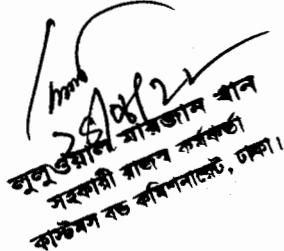 লুলুওয়াল মারজান খান
সহকারী রাজস্ব কর্মকর্তা
কাস্টমস বন্ড কমিশনারেট, ঢাকা।